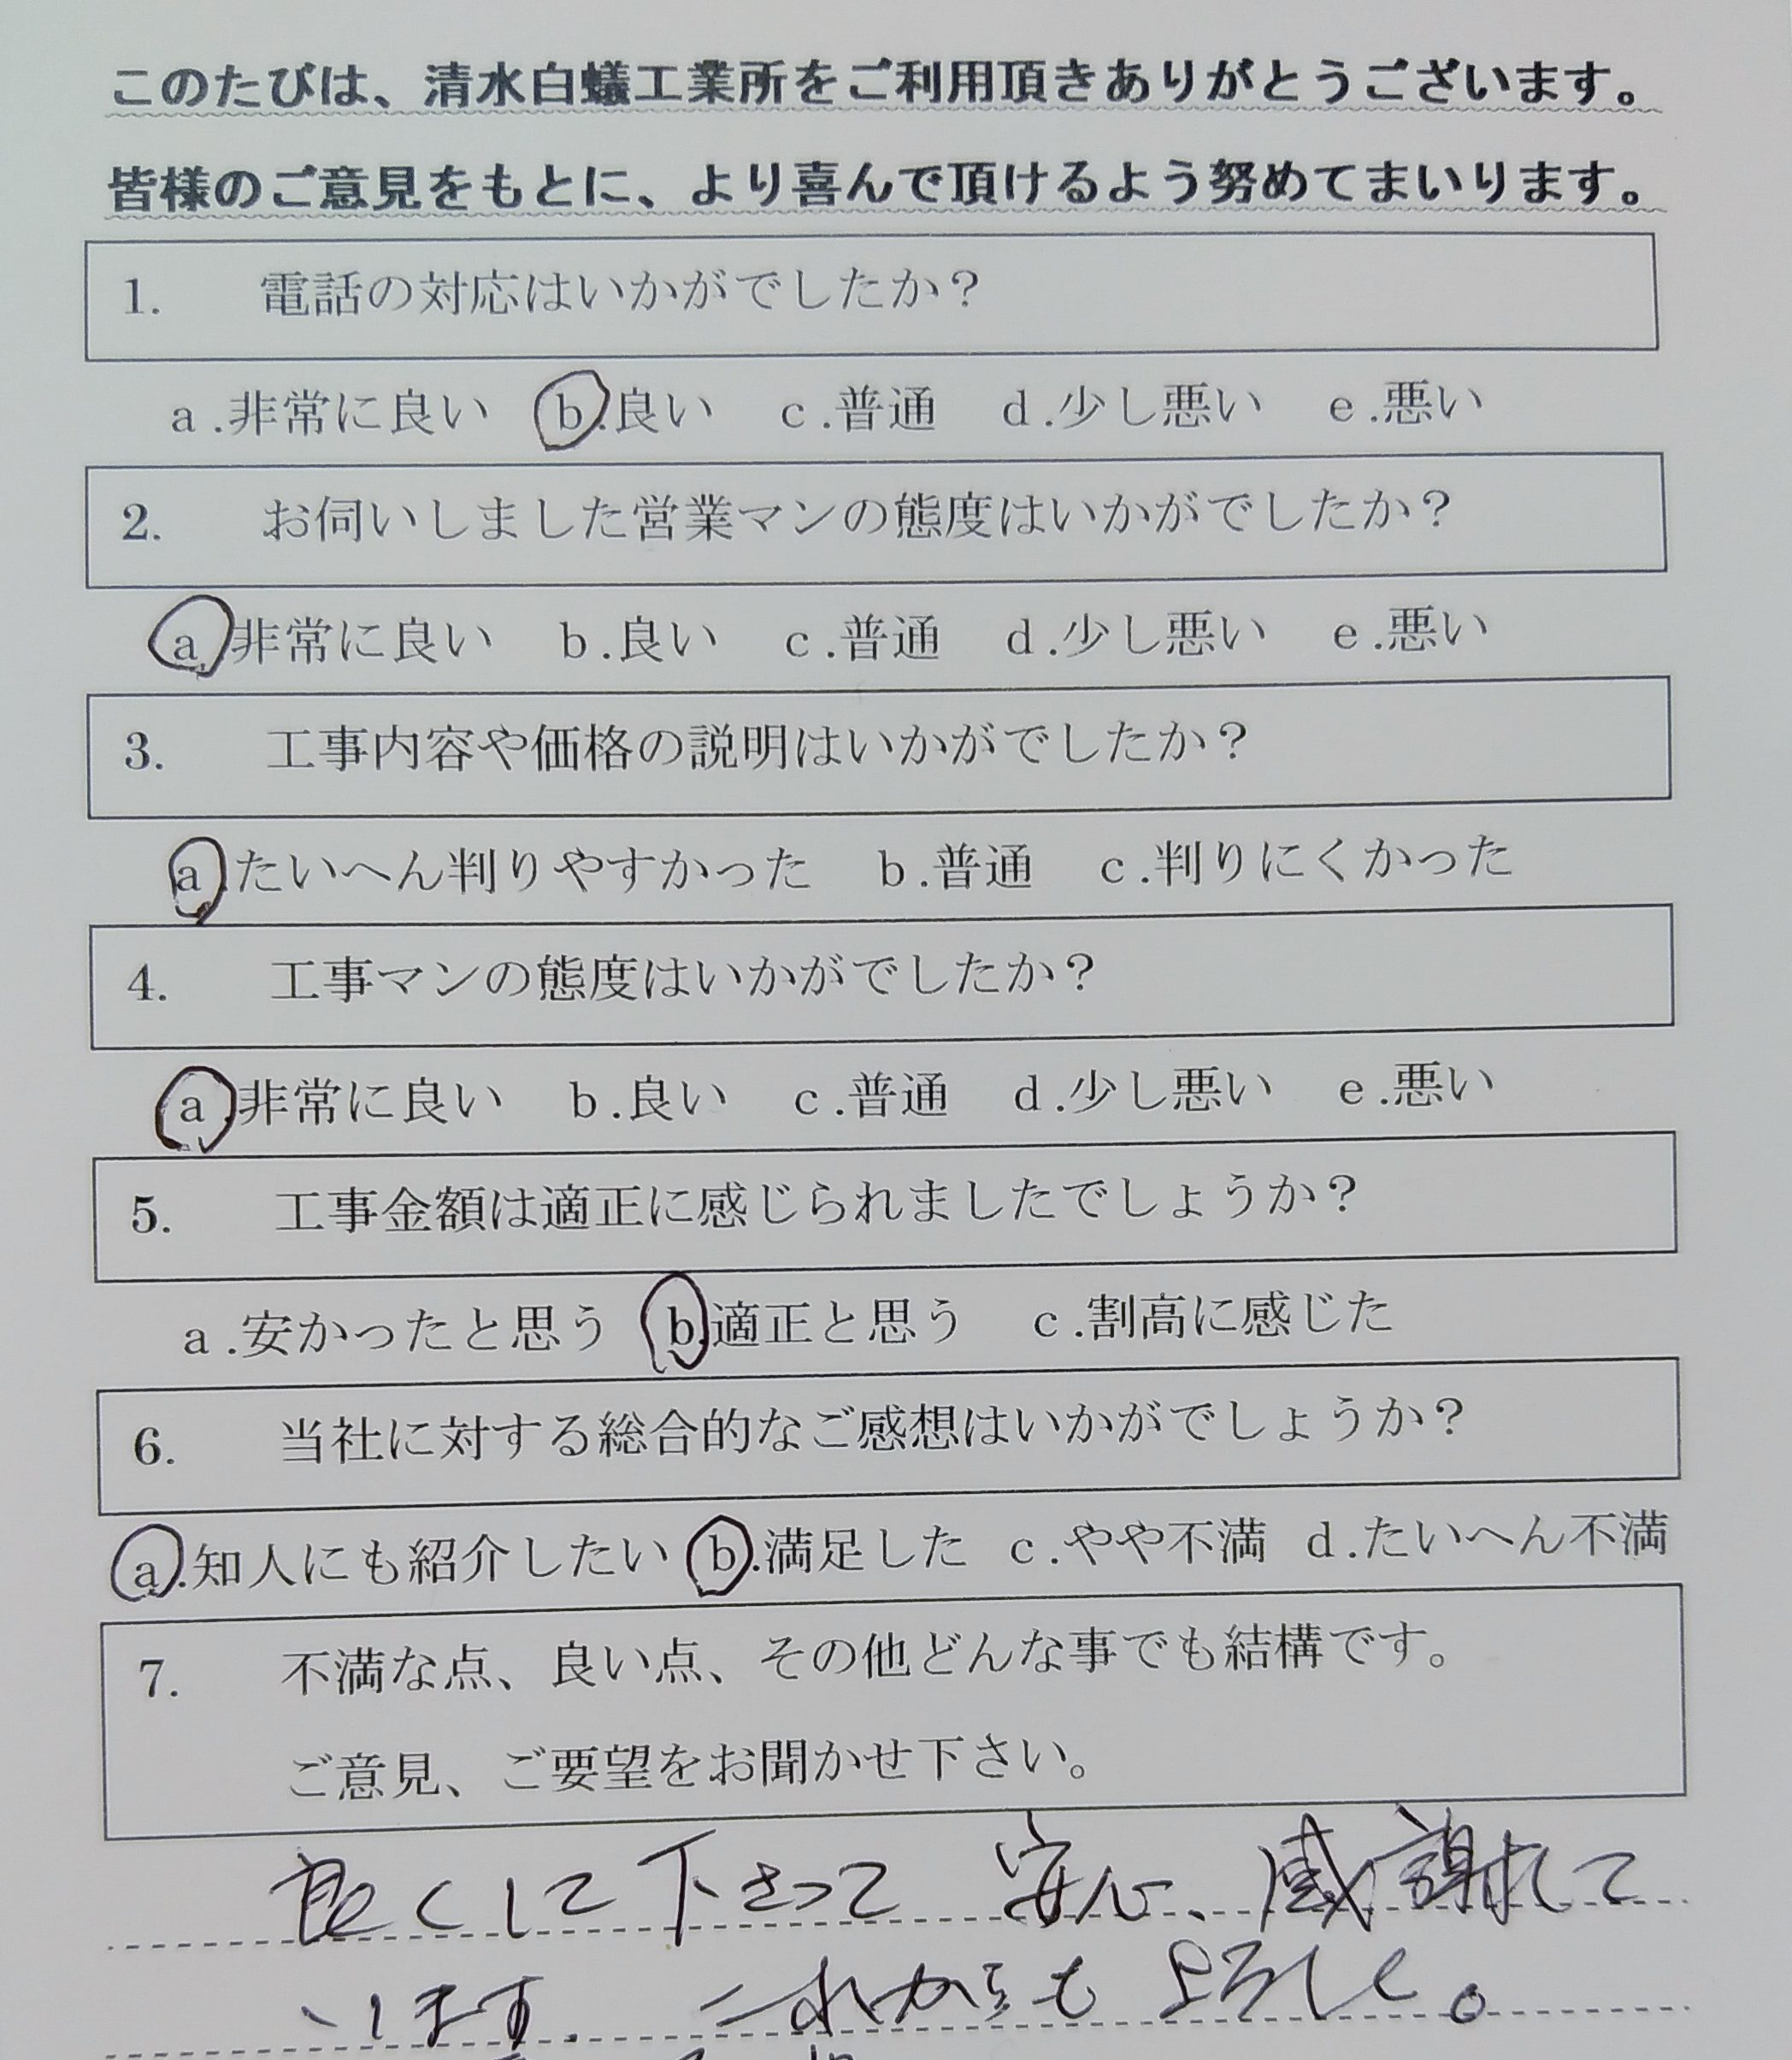 このたびは、清水白蟻工業所をご利用頂きありがとうございます。
皆様のご意見をもとに、より喜んで頂けるよう努めてまいります。
1. 電話の対応はいかがでしたか?
a.非常に良い b.良い c.普通 d.少し悪い e.悪い
2. お伺いしました営業マンの態度はいかがでしたか?
a.非常に良い b.良い c.普通 d.少し悪い e.悪い
3. 工事内容や価格の説明はいかがでしたか?
a.たいへん判りやすかった b.普通 c.判りにくかった
4. 工事マンの態度はいかがでしたか?
a.非常に良い b.良い c.普通 d.少し悪い e.悪い
5. 工事金額は適正に感じられましたでしょうか?
a.安かったと思う b.適正と思う c.割高に感じた
6. 当社に対する総合的なご感想はいかがでしょうか?
a.知人にも紹介したい b.満足した c.やや不満 d.たいへん不満
7. 不満な点、良い点、その他どんな事でも結構です。
ご意見、ご要望をお聞かせ下さい。
良くして下さって 安心、感謝して
います. これからも 宜しく。